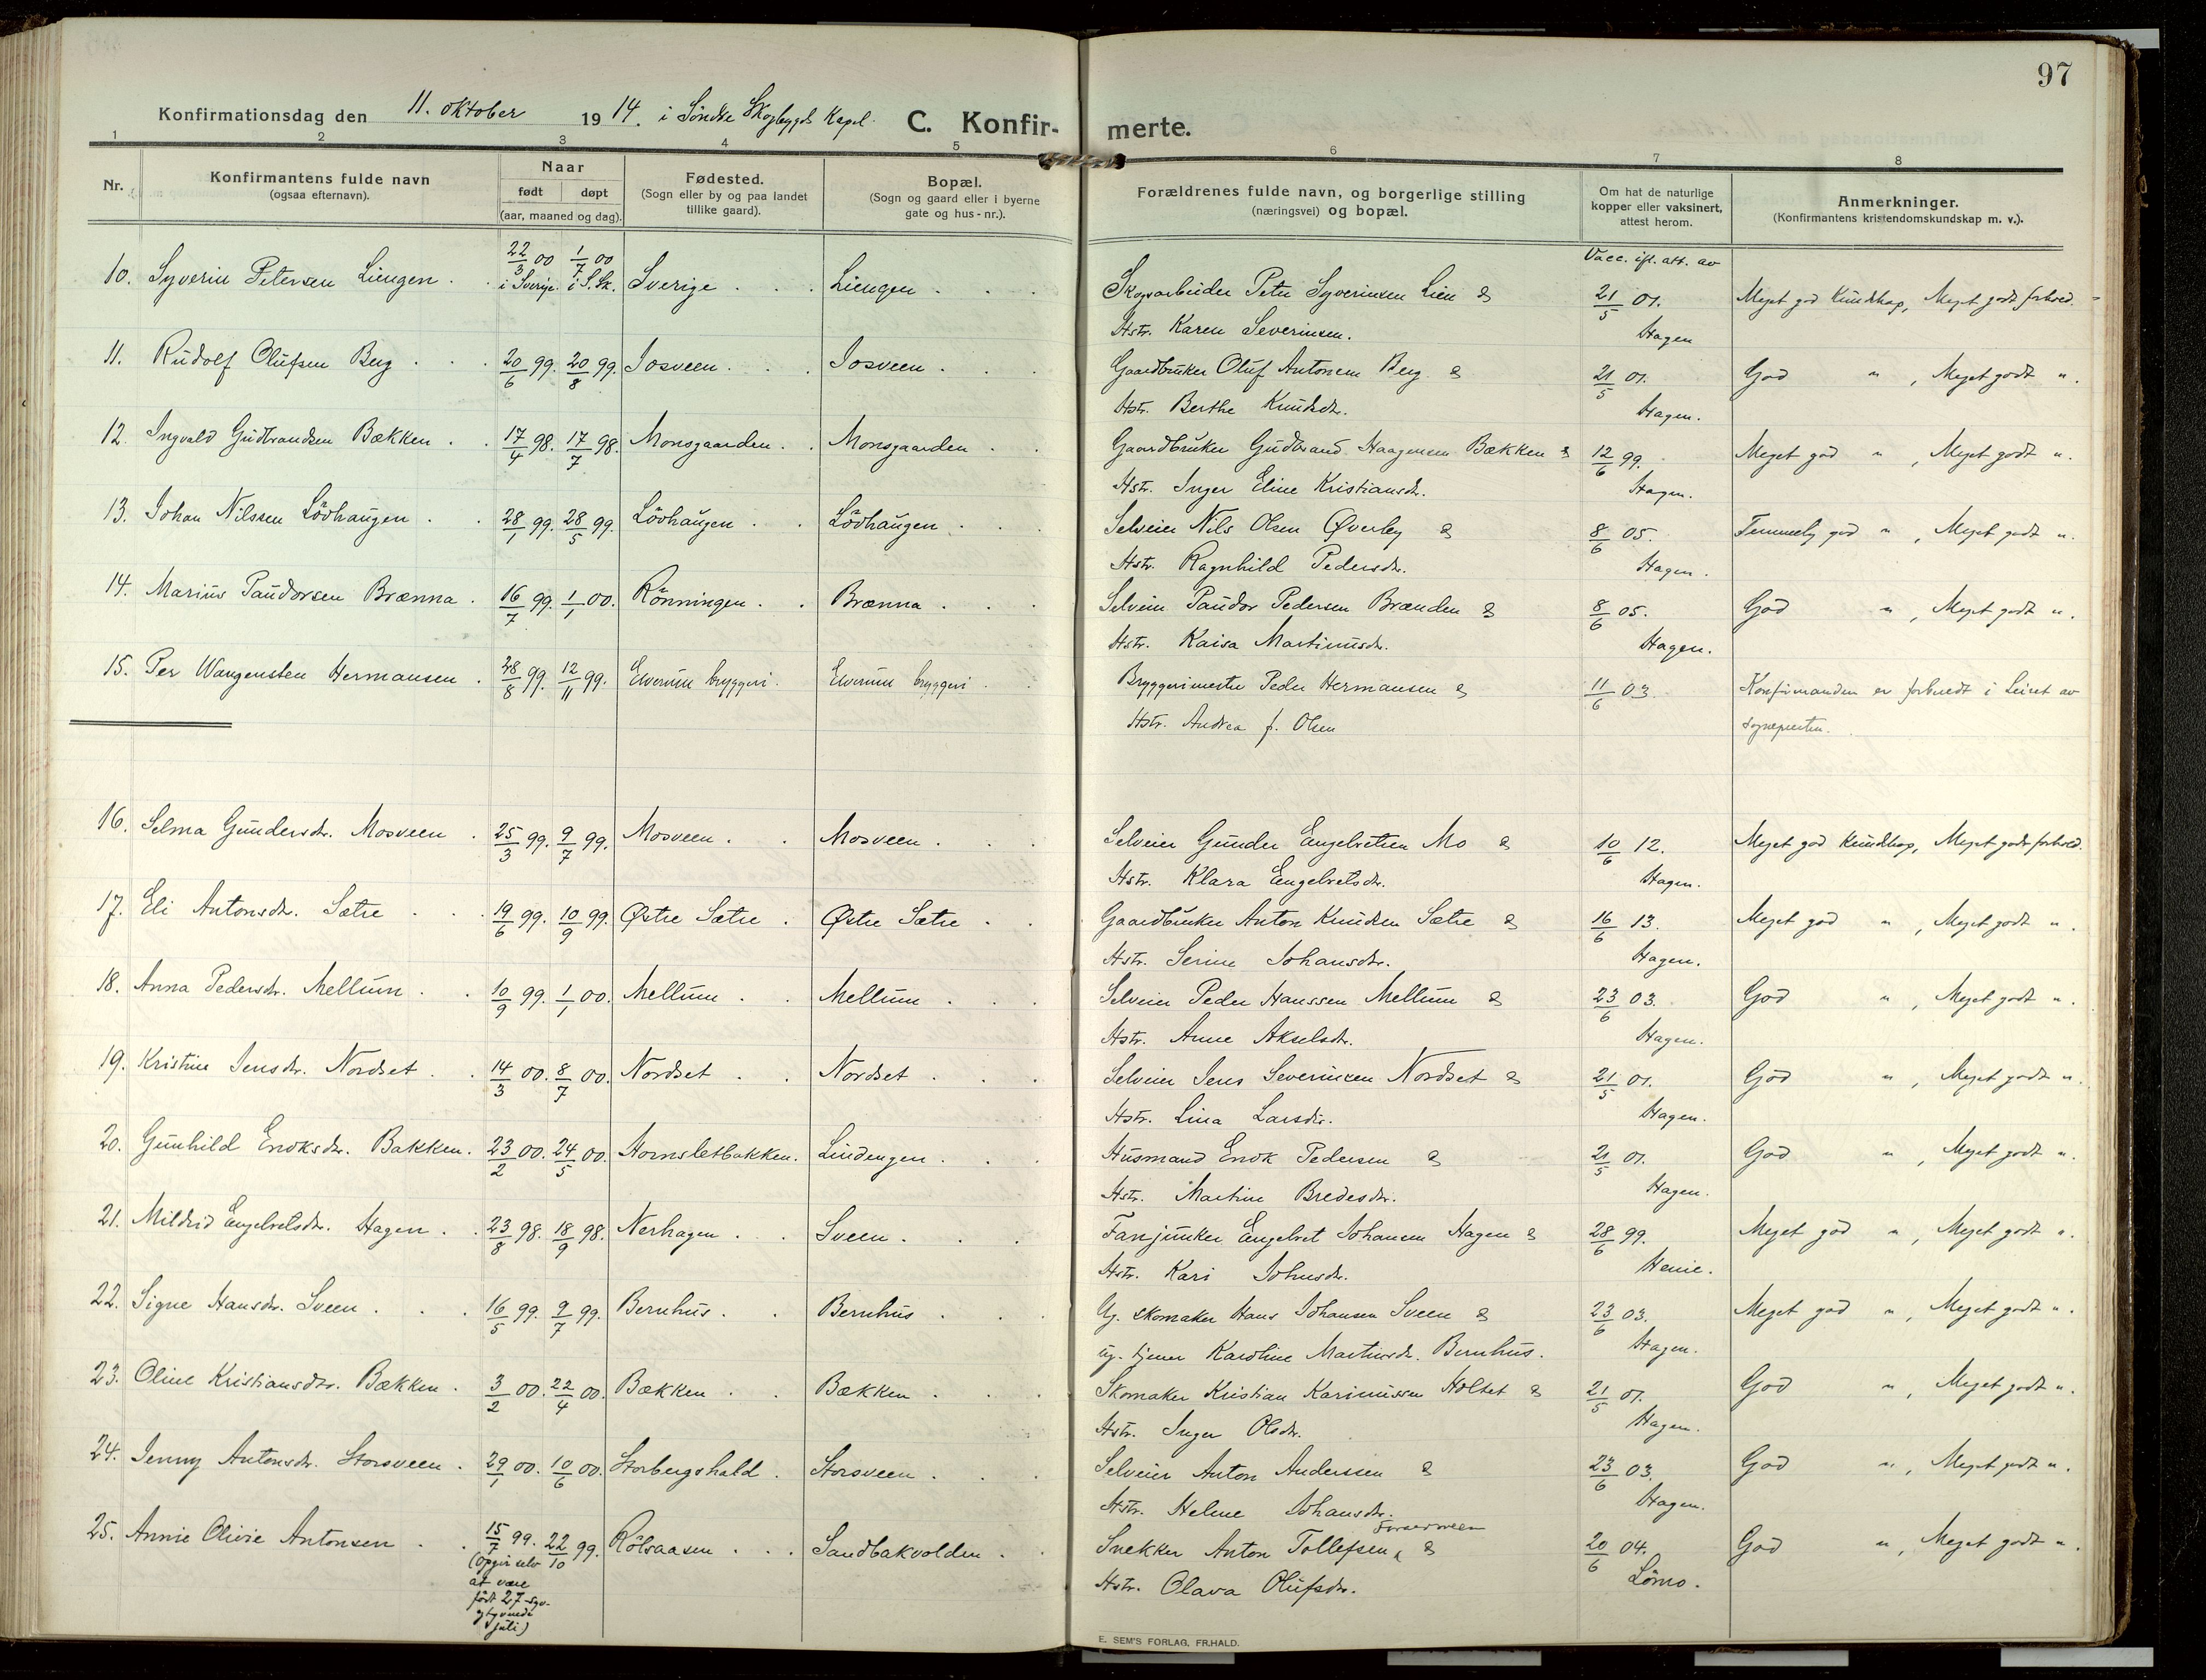 97
Konfirmationsdag den 11. oktober 1914. i Söndre Skogbygds Kapel. C. Konfirmerte.
1 2 3 4 5 6 7 8
Nr. Konfirmantens fulde navn (ogsaa efternavn). Naar født døpt (aar, maaned og dag). Fødested. (Sogn eller by og paa landet tillike gaard). Bopæl. (Sogn og gaard eller i byerne gate og hus-nr.). Forældrenes fulde navn, og borgerlige stilling (næringsvei) og bopæl. Om hat de naturlige kopper eller vaksinert, attest herom. Anmerkninger. (Konfirmantens kristendomskundskap m. v.).
Vacc. ifl. att. av
10. Syverin Petersen Liengen. 22/3 00 i Sverige. 1/7 00 i S. Sk. Sverige Liengen Skogsarbeider Peter Syverinsen Lien & 21/5 01. Meget god kundskap, Meget godt forhold.
Hstr. Karen Severinsen. Hagen
11. Rudolf Olufsen Berg 20/6 99. 20/8 99. Josveen. Josveen. Gaardbruker Oluf Antonsen Berg & 21/5 01. God " , Meget godt ".
Hstr. Berthe Knudsdr. Hagen.
12. Ingvald Gudbrandsen Bækken. 17/4 98. 17/7 98. Monsgaarden. Monsgaarden. Gaardbruker Gudbrand Haagensen Bækken & 12/6 99. Meget god " , Meget godt ".
Hstr. Inger Eline Kristiansdr. Hagen.
13. Johan Nilssen Lövhaugen. 28/1 99. 28/5 99. Lövhaugen. Lövhaugen. Selveier Nils Olsen Øverby & 8/6 05. Temmelig god " , Meget godt ".
Hstr. Ragnhild Pedersdr. Hagen.
14. Marius Paudorsen Brænna. 16/7 99. 1/1 00. Rönningen. Brænna. Selveier Paudor Pedersen Brænden & 8/6 05. God " , Meget godt ".
Hstr. Kaisa Martinusdr. Hagen.
15. Per Wangensten Hermansen. 28/8 99. 12/11 99. Elverum bryggeri. Elverum bryggeri. Bryggerimester Peder Hermansen & 11/6 03. Konfirmanden er forberedt i Leiret av
Hstr. Andrea f. Olsen sogneprესten.
16. Selma Gundersdr. Mosveen. 25/3 99. 9/7 99. Mosveen. Mosveen. Selveier Gunder Engebretsen Mo & 10/6 12. Meget god kundskap, Meget godt forhold.
Hstr. Klara Engebretsdr. Hagen.
17. Eli Antonsdr. Sætre 19/6 99. 10/9 99. Østre Sætre. Østre Sætre. Gaardbruker Anton Knudsen Sætre & 16/6 13. Meget god " , Meget godt ".
Hstr. Serine Johansdr. Hagen.
18. Anna Pedersdr. Mellum. 10/9 99. 1/1 00. Mellum. Mellum. Selveier Peder Hanssen Mellum & 23/6 03. God " , Meget godt ".
Hstr. Anne Akselsdr. Hagen.
19. Kristine Jensdr. Nordset. 14/3 00. 8/7 00. Nordset. Nordset. Selveier Jens Severinsen Nordset & 21/5 01. God " , Meget godt ".
Hstr. Lina Larsdr. Hagen.
20. Gunhild Enoksdr. Bakken. 23/2 00. 24/5 00. Hornsletbakken. Lindengen. Husmand Enok Pedersen & 21/5 01. God " , Meget godt ".
Hstr. Martine Bredesdr. Hagen.
21. Mildrid Engebretsdr. Hagen. 23/8 98. 18/9 98. Nerhagen. Sveen. Fanejunker Engebret Johansen Hagen & 28/6 99. Meget god " , Meget godt ".
Hstr. Kari Johnsdr. Henie.
22. Signe Hansdr. Sveen. 16/5 99. 9/7 99. Bernhus. Bernhus. Ug. skomaker Hans Johansen Sveen & 23/6 03. Meget god " , Meget godt ".
ug. tjener Karoline Martinsdr. Bernhus. Hagen.
23. Oline Kristiansdtr. Bækken. 3/2 00. 22/4 00. Bækken. Bækken. Skomaker Kristian Karinussen Holtet & 21/5 01. God " , Meget godt ".
Hstr. Inger Olsdr. Hagen.
24. Jenny Antonsdr. Storsveen. 29/1 00. 10/6 00. Storbergshald. Storsveen. Selveier Anton Anderssen & 23/6 03. God " , Meget godt ".
Hstr. Helene Johansdr. Hagen.
25. Annie Olivie Antonsen. 15/7 99. 22/10 99. Rölsaasen. Sandbakvolden. Snekker Anton Tollefsen & 20/6 04. God " , Meget godt ".
(opgir selv at være født 27 - syv- og tyvende juli) Hstr. Olava Olufsdr. Lömo.
E. SEM'S FORLAG, FR.HALD.